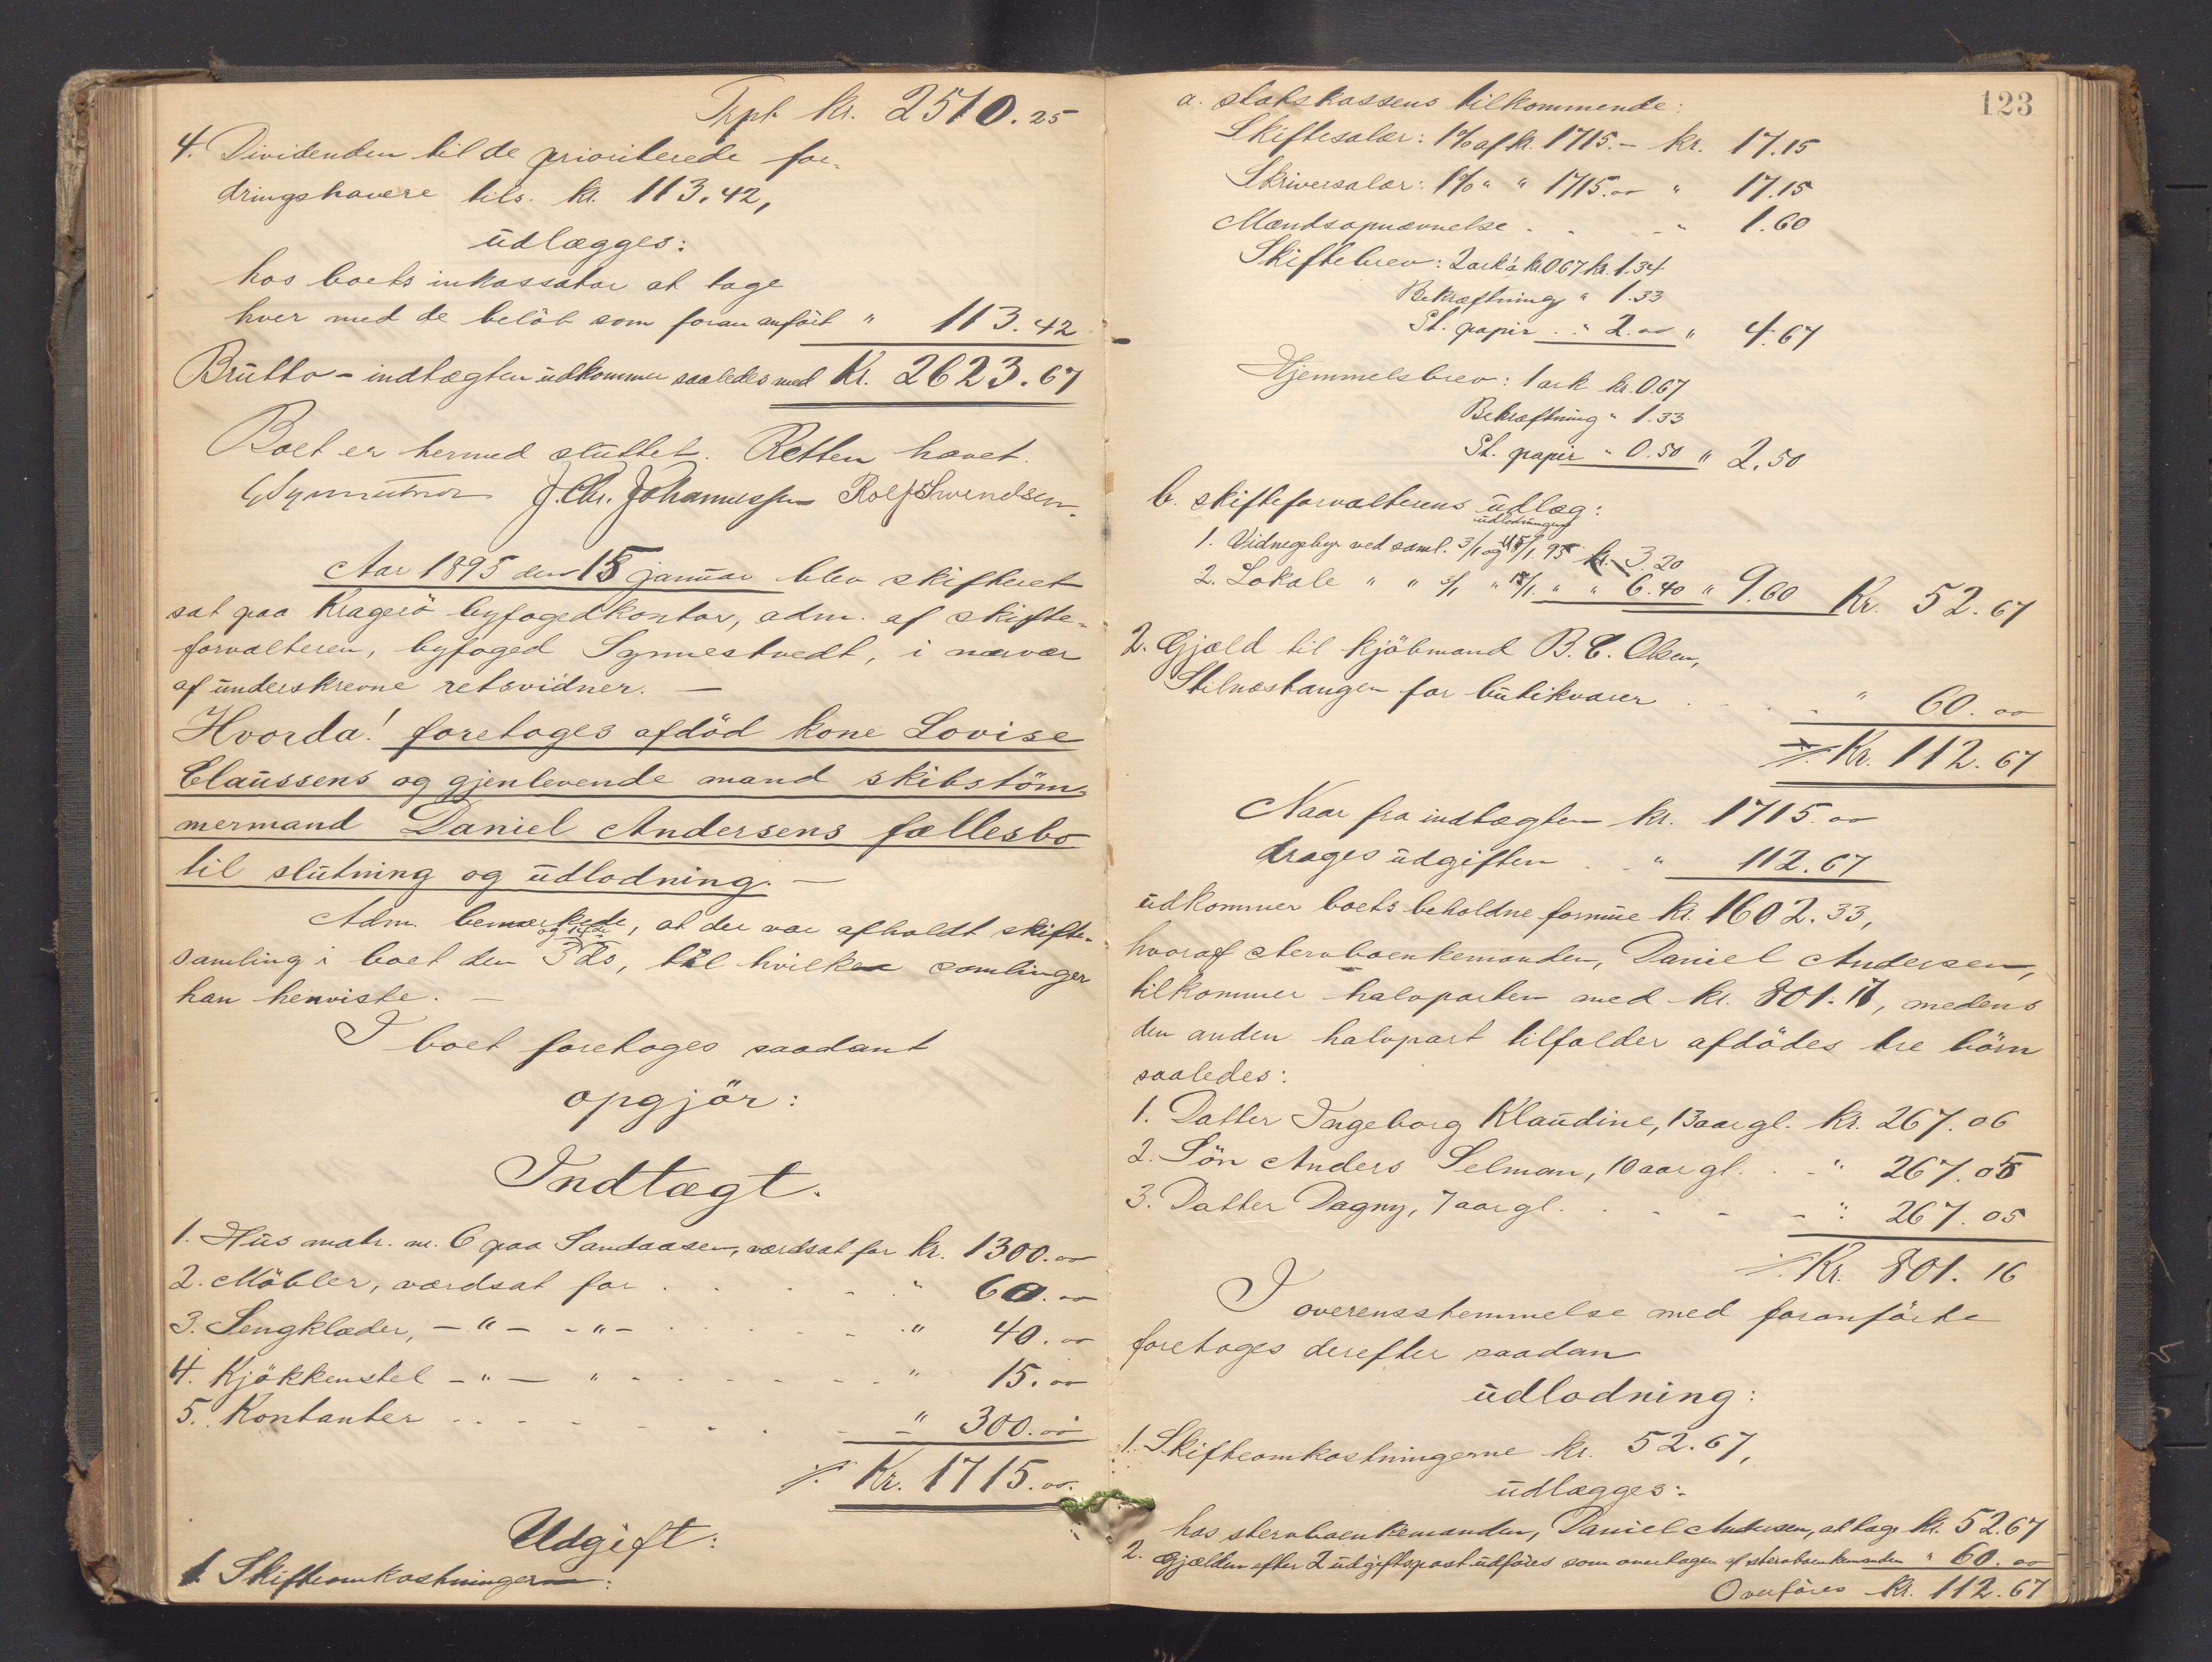 Trpt. kr. 2510.25
4. Dividenden til de prioriterede for-
dringshavere tils. kr. 113.42,
udlægges:
hos boets inkassator at tage
hver med de belöb som foran anfört " 113.42
Brutto-indtægten udkommer saaledes med Kr. 2623.67
Boet er hermed sluttet. Retten hævet.
J. Chr. Johannessen Rolf Svendsen.
Aar 1895 den 15 januar blev skifteret
sat paa Kragerö byfogedkontor, adm. af skifte-
forvalteren, byfoged Synnestvedt, i nærvær
af underskrevne retsvidner. —
Hvorda! foretoges afdöd kone Lovise
Claussens og gjenlevende mand skibstöm-
mermand Daniel Andersens fællesbo
til slutning og udlodning. —
Adm. bemærkede, at der var afholdt skifte-
samling i boet den 3 ds, til hvilke samlinger
han henviste. —
I boet foretoges saadant
opgjör:
Indtægt.
1. Hus matr. nr. 6 paa Sandaasen, værdsat for kr. 1300.00
2. Möbler, værdsat for . . . . " 60.00
3. Sengklæder, — " — - " - . . . . " 40.00
4. Kjökkenstel - " — " - - - - - " 15.00
5. Kontanter . . - - - - - " 300.00
Kr. 1715.00.
Udgift:
1. Skifteomkostningerne:
123
a. statskassens tilkommende:
Skiftesalær: 1% af kr. 1715.- kr. 17.15
Skriversalær: 1% " " 1715.00 " 17.15
Mandsopnævnelse . . . " 1.60
Skiftebrev: 2 ark à kr. 0.67 kr. 1.34
Bekræftning " 1.33
St. papir . . " 2.00 " 4.67
Hjemmelsbrev: 1 ark kr. 0.67
Bekræftning " 1.33
St. papir " 0.50 " 2.50
b. skifteforvalterens udlæg:
udlodningen
1. Vidnegebyr ved saml. 3/1 og 15/1 95 kr. 3.20
2. Lokale " " 3/1 " 15/1 " " 6.40 " 9.60 Kr. 52.67
2. Gjæld til kjöbmand B. C. Olsen,
Stilnæstangen for butikvarer . . . . " 60.00
Kr. 112.67
Naar fra indtægten kr. 1715.00
drages udgiften . . " 112.67
udkommer boets beholdne formue kr. 1602.33,
hvoraf stervboenkemanden, Daniel Andersen,
tilkommer halvparten med kr. 801.17, medens
den anden halvpart tilfalder afdödes tre börn
saaledes:
1. Datter Ingeborg Klaudine, 13 aar gl. kr. 267.06
2. Sön Anders Selman, 10 aar gl. . - " 267.05
3. Datter Dagny, 7 aar gl. . . - - - " 267.05
Kr. 801.16
I overensstemmelse med foranförte
foretoges derefter saadan
udlodning:
1. Skifteomkostningerne kr. 52.67,
udlægges:
hos stervboenkemanden, Daniel Andersen, at tage kr. 52.67
2. Gjælden efter 2 udgiftspost udföres som overtagen af stervboenkemanden " 60.00
Overföres kr. 112.67